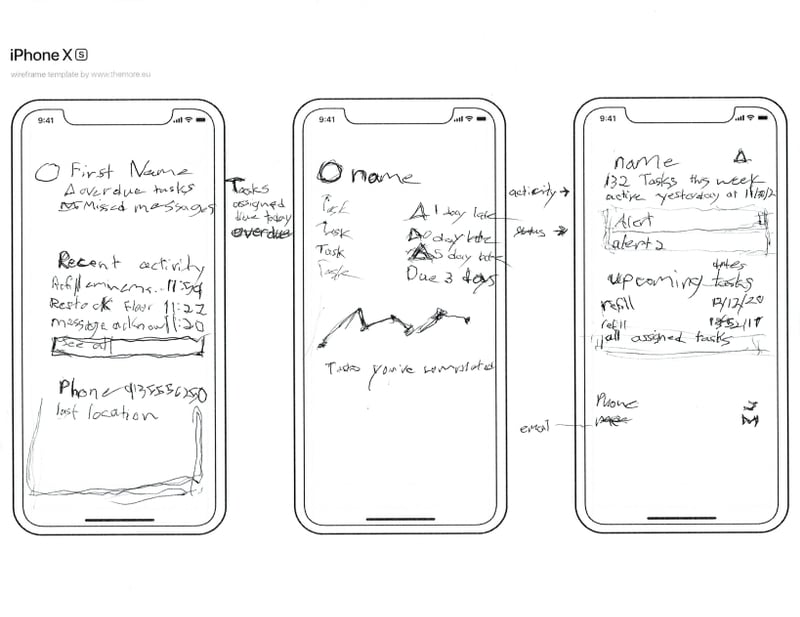 iPhone X S
wireframe template by www.themore.eu
9:41
First Name
overdue tasks
Missed messages
Recent activity
11:54
Restock Floor 11:22
message acknow 11:20
see all
Phone 9135556250
last location
Tasks
assigned
due today
overdue
9:41
name
Task
1 day late
Task
day late
Task
5 day late
Task
Due 3 days
Tasks you've completed
activity
status
email
9:41
name
132 Tasks this week
active yesterday at
Alert
alert 2
dates
upcoming tasks
refill 12/12/20
refill
all assigned tasks
Phone